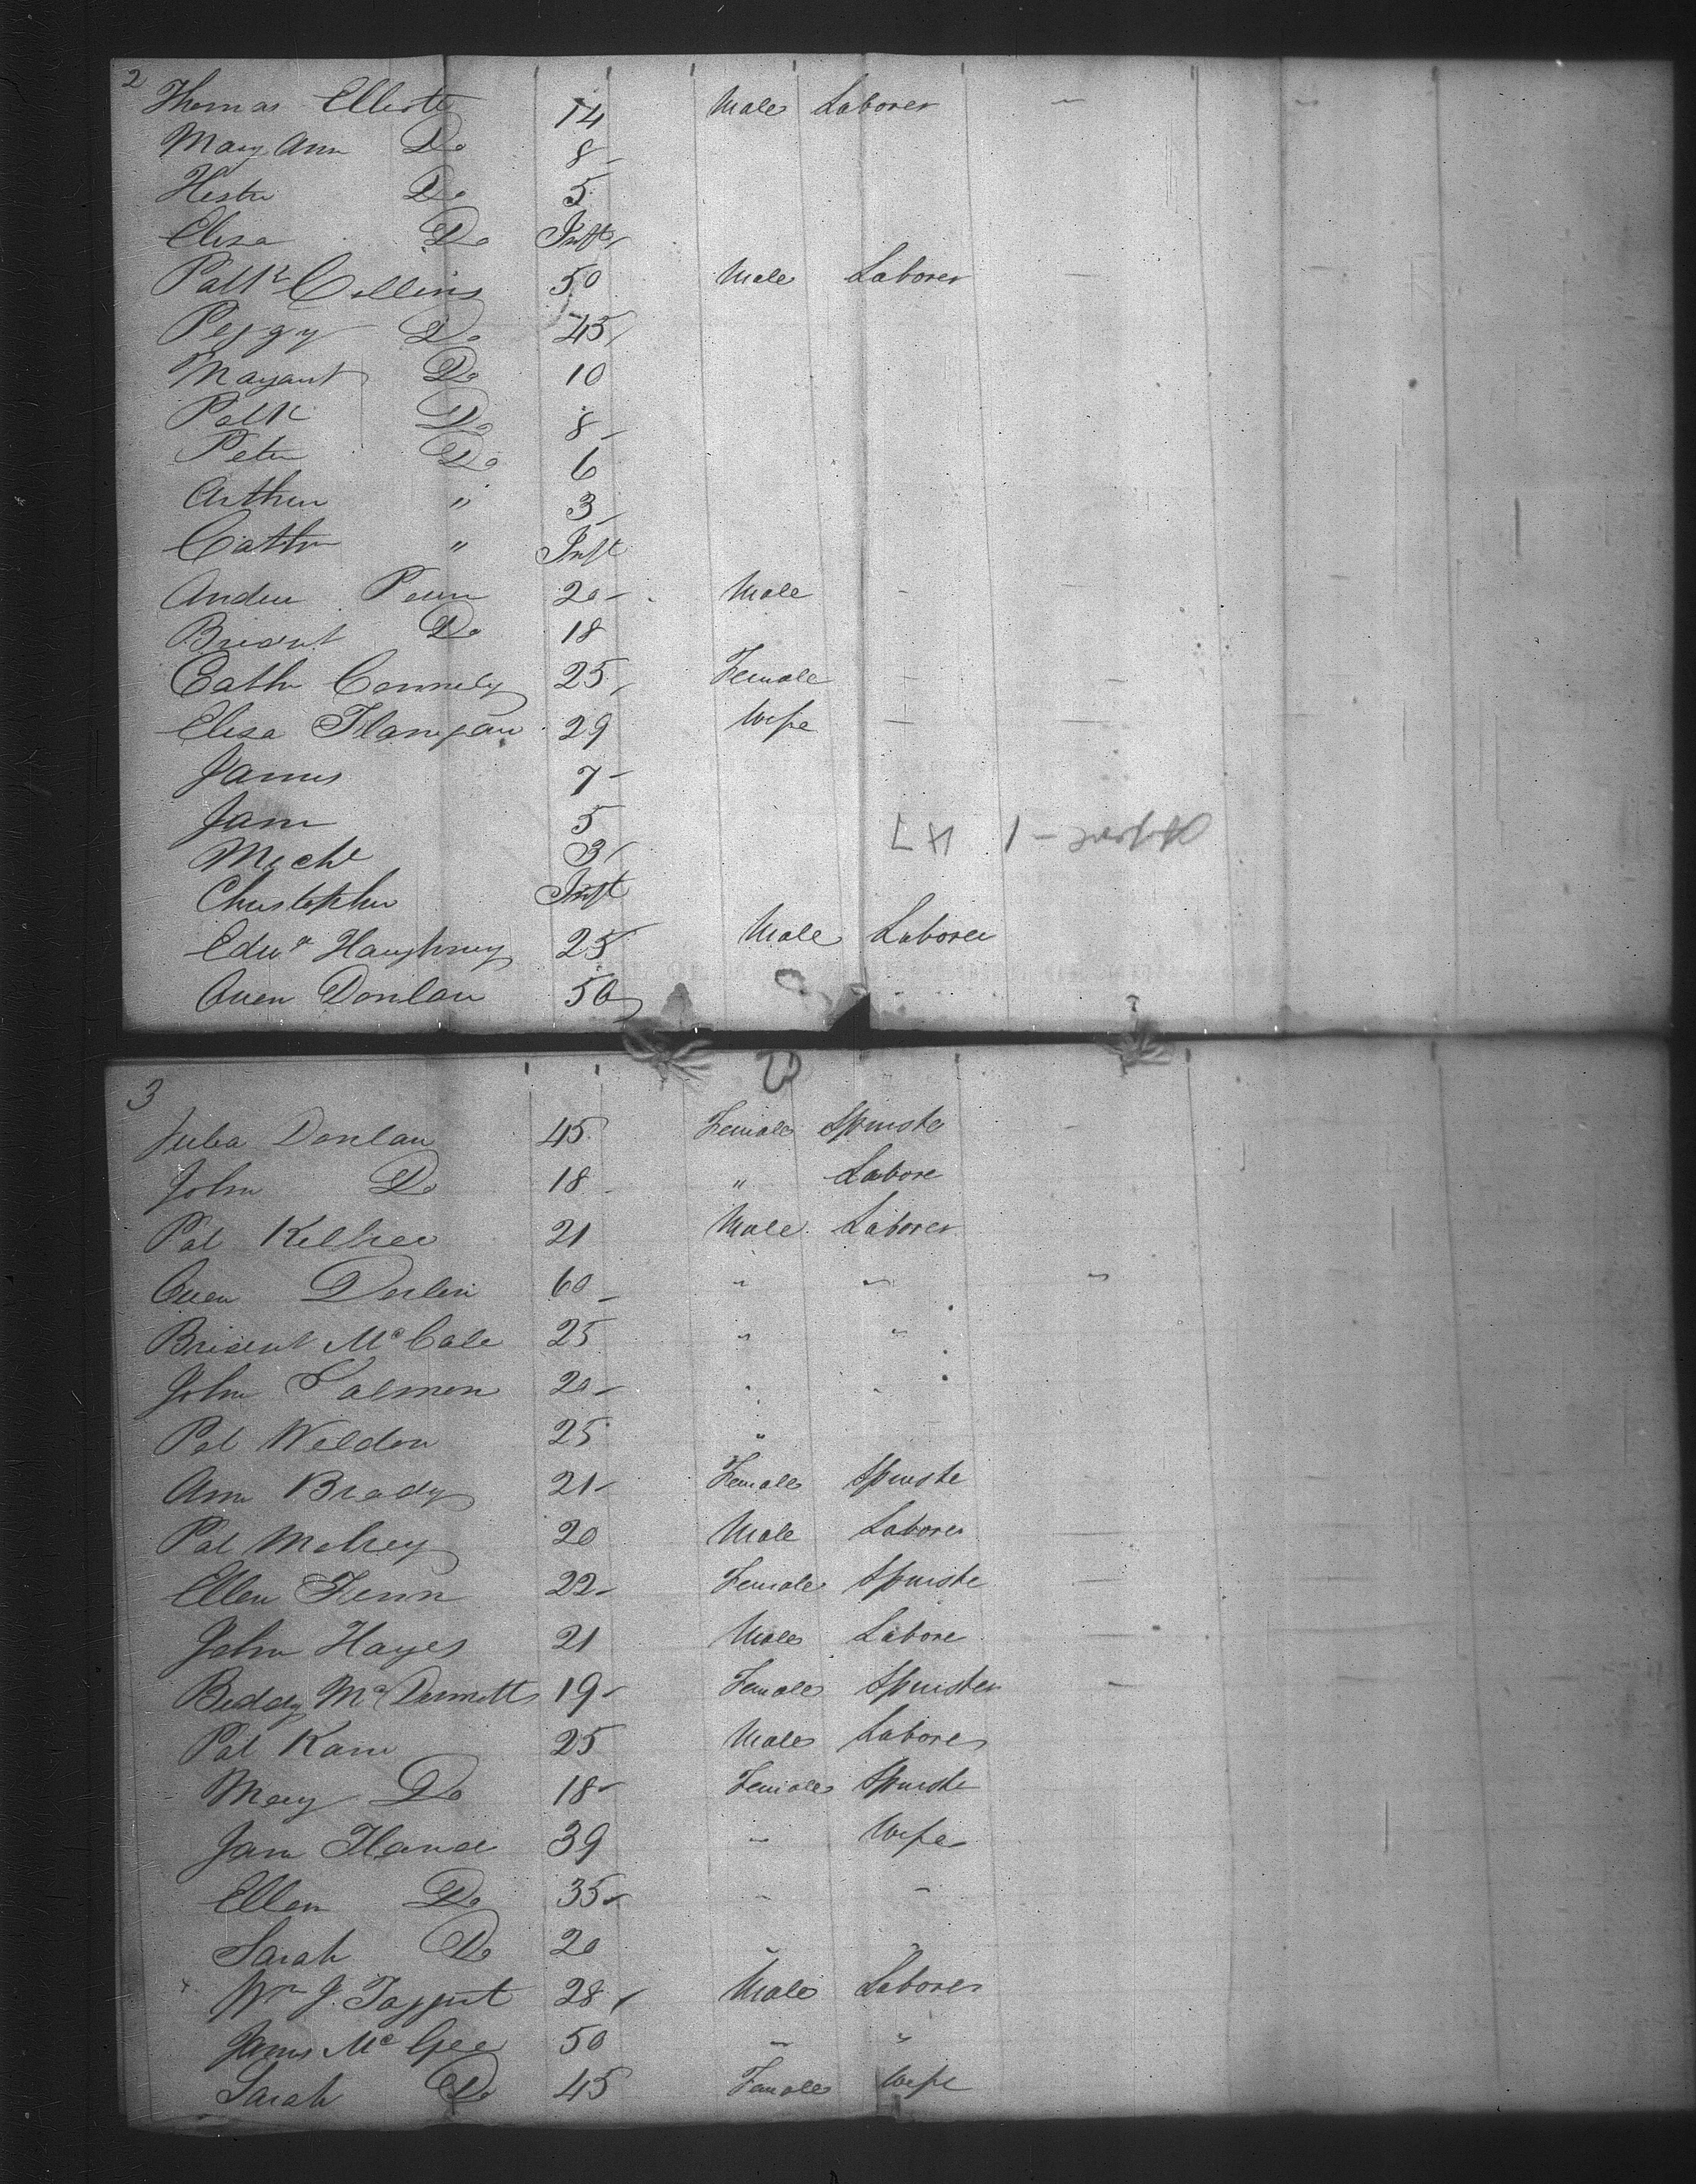 2
Thomas Elliott 14 Male Laborer "
Mary Ann Do 8
Hester Do 5
Eliza Do Inft
Patk Collins 50 Male Laborer
Peggy Do 45
Margaret Do 10
Patk Do 8
Peter Do 6
Arthur " 3
Cathn " Inft
Andw 20 Male
Bridget Do 18
Cath Connely 25 Female
Eliza Flanigan 29 Wife
James 7
Jane 5
Michl 3
Christopher Inft
Edwd Haughney 25 Male Laborer
Owen Donlan 50
3
Julia Donlan 45 Female Spinste
John Do 18 " Labore
Pat 21 Male Laborer
Owen 60 " " "
Bridget McCale 25 " "
John Salmon 20 " "
Pat Weldon 25 "
Ann Brady 21 Female Spinste
Pat 20 Male Laborer
Ellen 22 Female Spinste
John Hayes 21 Male Labore
Biddy McDermott 19 Female Spinster
Pat Kane 25 Male Laborer
Mary Do 18 Female Spinste
Jane 39 " Wife
Ellen Do 35 " "
Sarah Do 20 " "
Wm J. Taggert 28 Male Laborer
James McGee 50 " "
Sarah Do 45 Female Wife